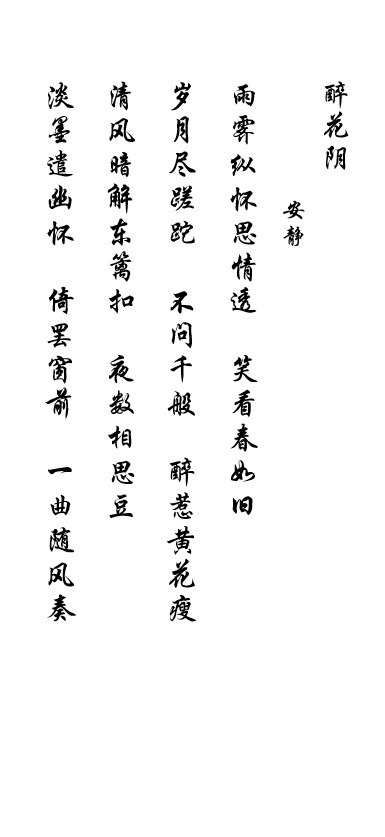 醉花阴
安静
雨霁纵怀思情透 笑看春如旧
岁月尽蹉跎 不问千般 醉惹黄花瘦
清风暗解东篱扣 夜数相思豆
淡墨遣幽怀 倚罢窗前 一曲随风奏